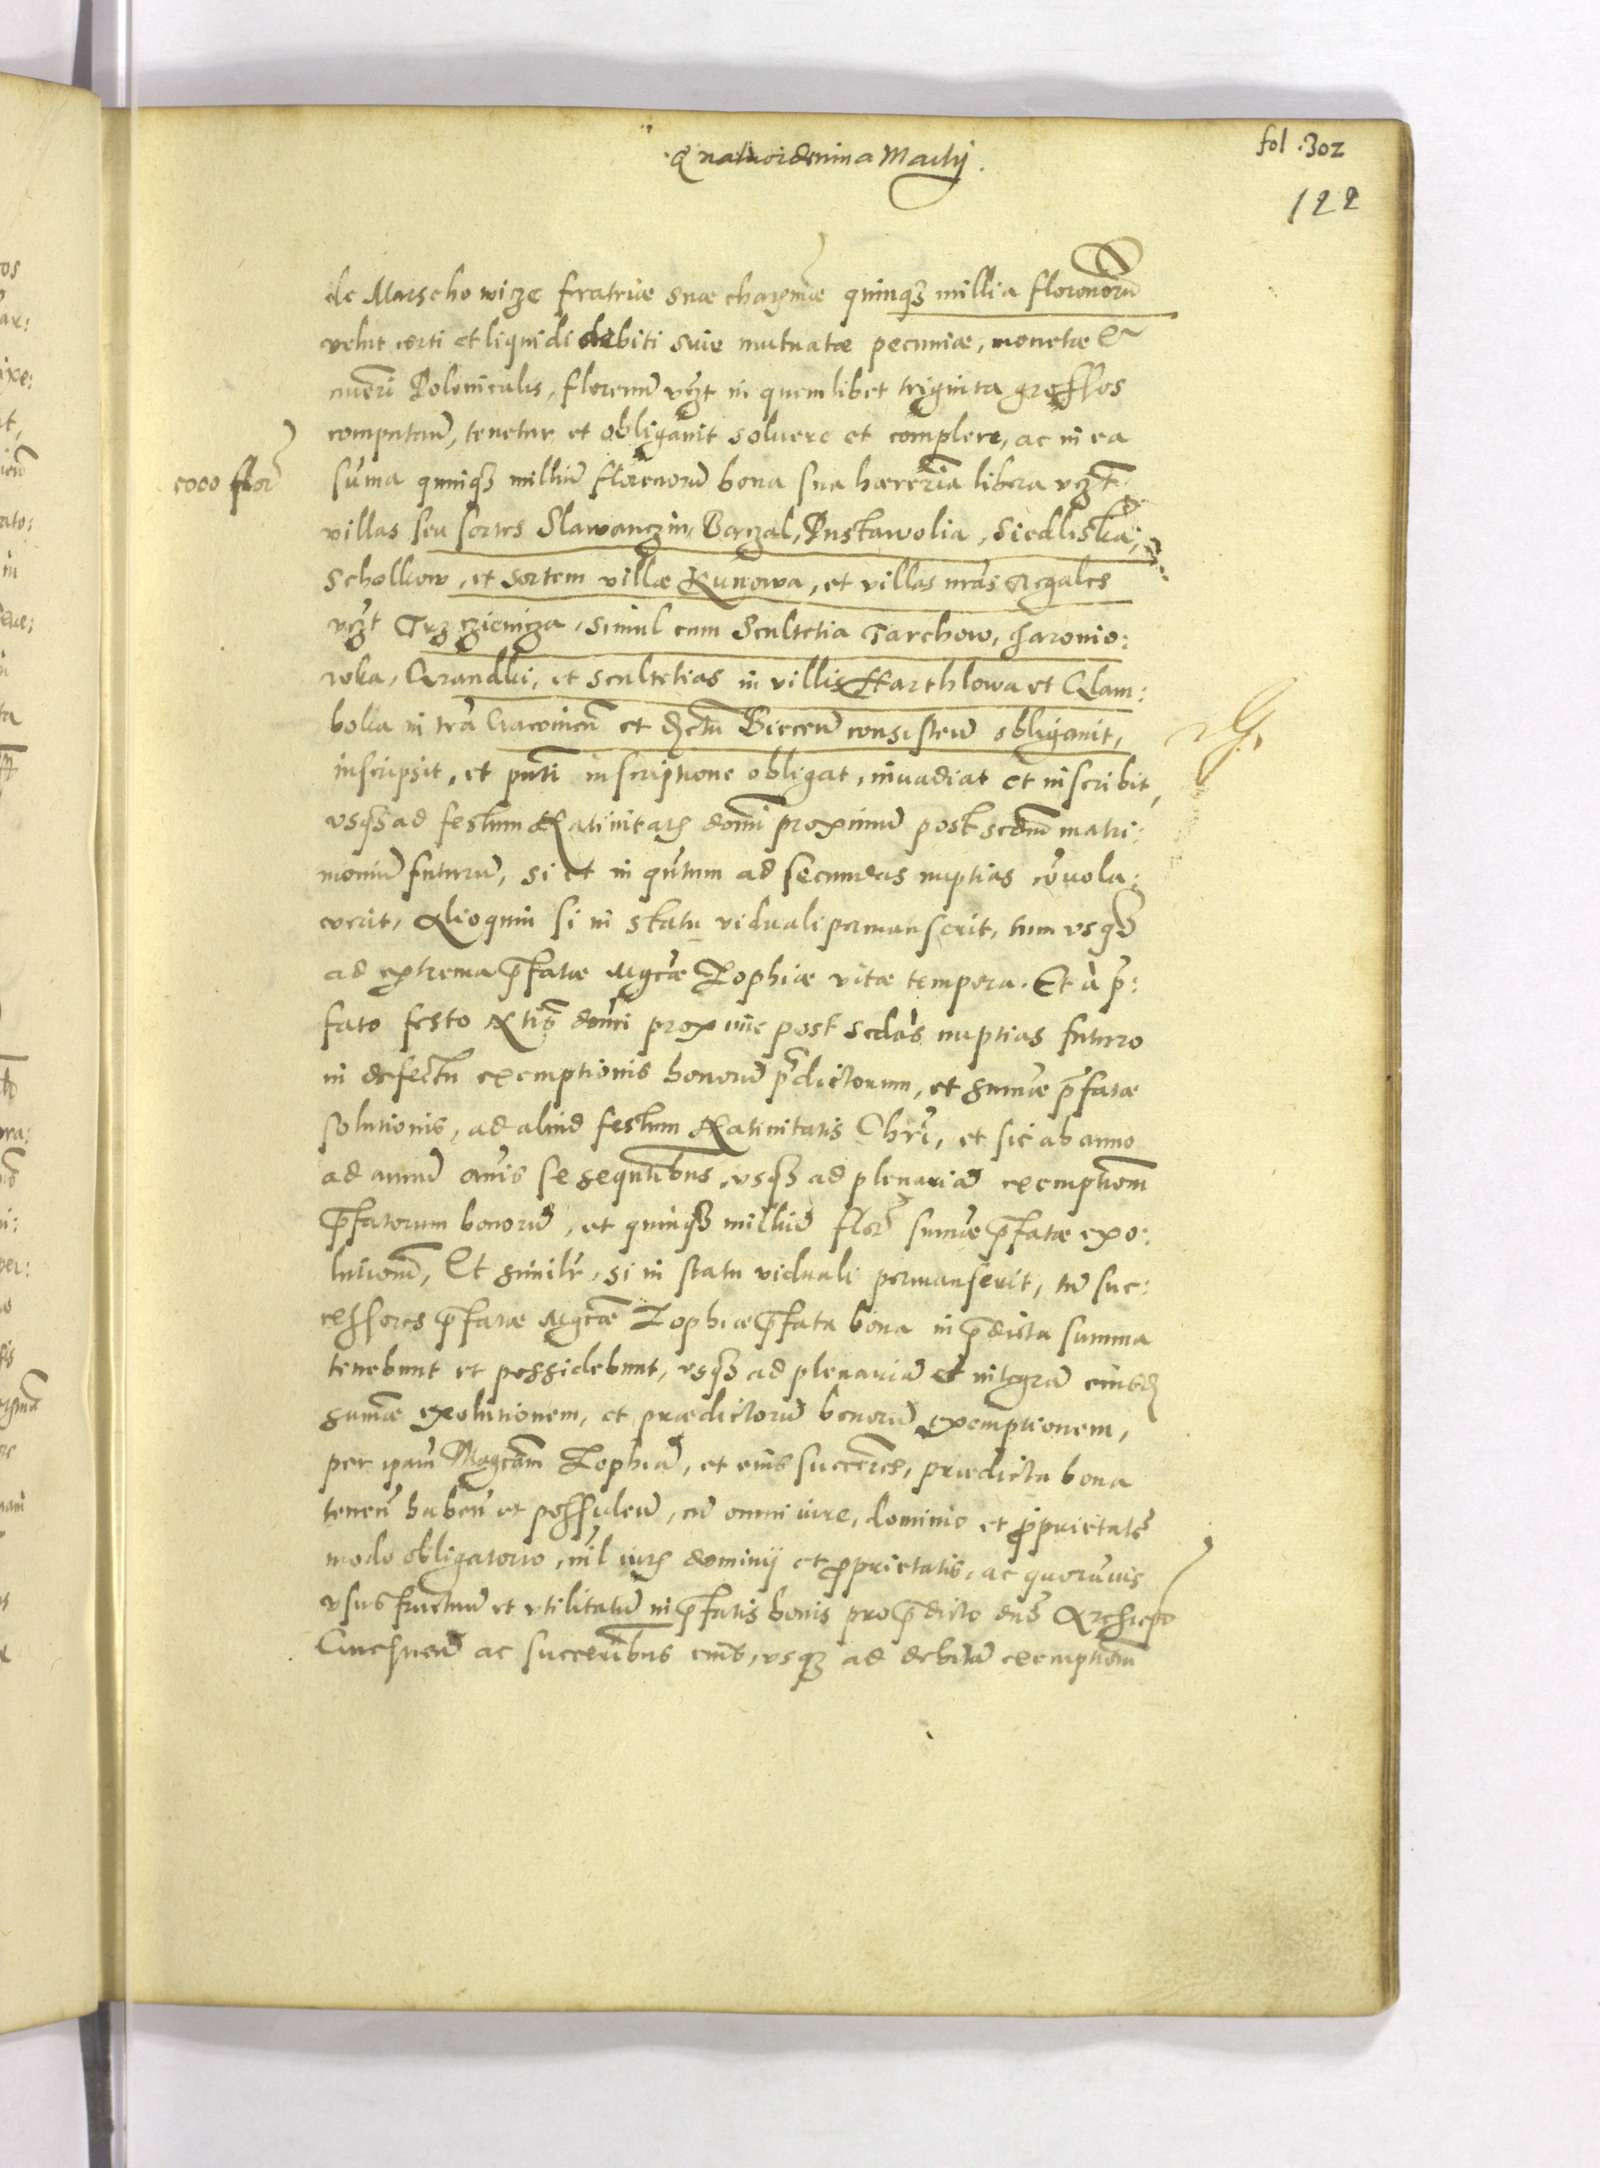 Quatuordenina Martij.
fol .302
122
de Marschowicze fratriae suae charismae quinq3 millia florenorū
velut certi et liquidi debiti suae mutuatae pecuniae, monetae &
nueri Polonicalis, florenū vczt in quemlibet triginta grossos
computan̄, tenetur et obligauit soluere et complere, ac in ea
5000 flor
sum̄a quinq3 milliū florenorū bona sua haereria libera vczt
villas seu sortes Slawanczin, Barzal, Pustawolia, Siedliska,
Scholkow, et sortem villae Kunowa, et villas nrās Regales
vczt Trzczienicza, simul cum Scultetia Tarchow, Jaronio:
wka, Grandki, et scultetias in villis Harthlowa et Glam:
boka in trā Cracouien̄ et dictū Biecen̄ consisten̄ obligauit,
inscripsit, et pnti inscriptione obligat, inuadiat et inscribit,
vsq3 ad festum Natiuitatis domi proximū post scdm̄ matri:
moniū futurū, si et in qntum ad secundas nuptias cōuola:
uerit, Alioquin si in statu viduali permanserit, tum vsq3
ad extrema p̄fatae Mgcae Zophiae vitae tempora. Et à p̄:
fato festo Ntis domi proxime post scdas nuptias futuro
in defectu exemptionis bonorū p̄dictorum, et sum̄ae p̄fatae
solutionis, ad aliud festum Natiuitatis Chri, et sic ab anno
ad annū annis se sequntibus, vsq3 ad plenariā exemptionem
p̄fatorum bonorū, et quinq3 milliū flor sum̄ae p̄fatae exo:
lutionem, Et similr, si in statu viduali permanserit, tū suc:
cessores p̄fatae Mgcae Zophiae p̄fata bona in p̄dicta summa
tenebunt et possidebunt, vsq3 ad plenariā et integrā eiusd
sum̄ae exolutionem, et praedictorū bonorū exemptionem,
per ipam Magcam Zophiā, et eius succeores, praedicta bona
tenen̄ haben̄ et possiden̄, cū omni iure, dominio et proprietate
modo obligatorio, nil iuris dominij et proprietatis, ac quorūuis
vsus fructuū et vtilitatū in p̄fatis bonis pro p̄dicto dno Archiepo
Gnesnen̄ ac succeoribus eius, vsq3 ad debitā exemptionem